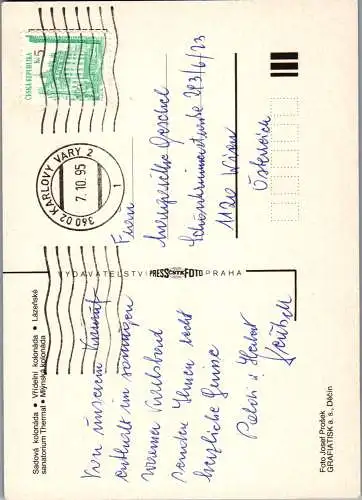 Sadová kolonáda • Vřídelní kolonáda • Lázeňské
sanatorium Thermal • Mlýnská kolonáda
Von unserem
aufenthalt im sonnigen
warmen Karlsbad
senden Ihnen recht
herzliche Grüsse
Poldi u Herbert
VYDAVATELSTVÍ PRESSFOTO PRAHA
ČESKÁ REPUBLIKA
Kč 5
360 02 KARLOVY VARY 2
7.10.95
1
Schönbrunnerstraße 293/6/23
1120 Wien
Österreich
Foto Josef Prošek
GRAFIATISK a. s., Děčín